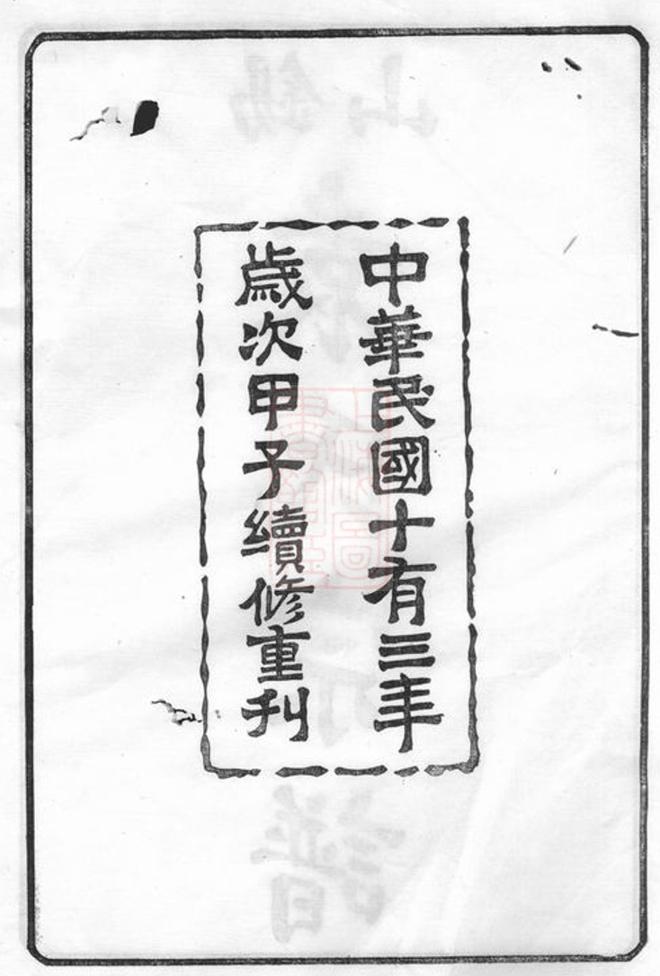 中華民國十有三年
歲次甲子續修重刊